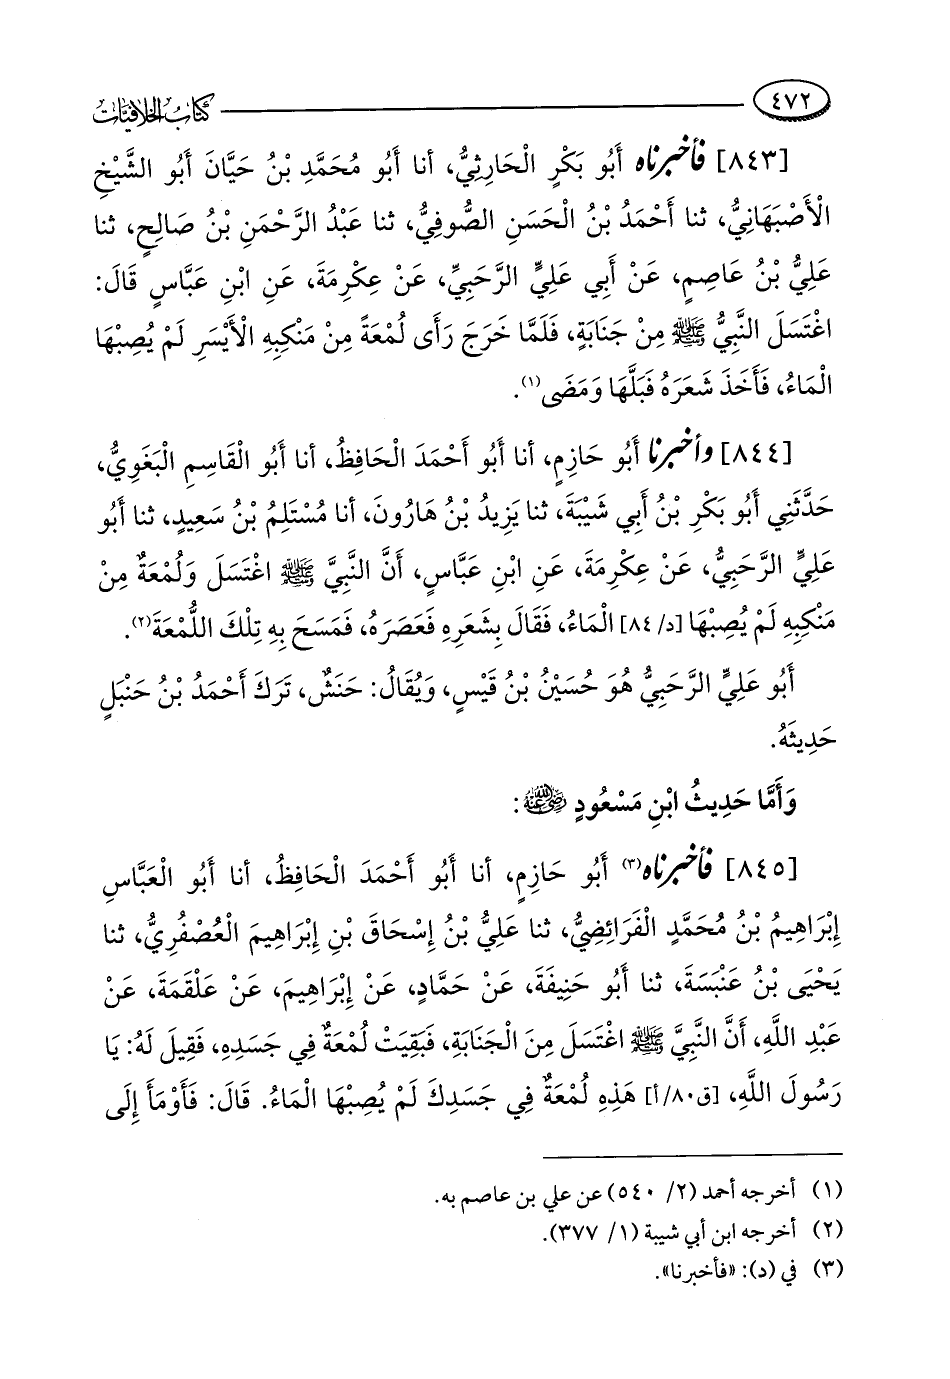 ٤٧٢ كتاب الخلافيات
[٨٤٣] فأخبرناه أَبُو بَكْرٍ الْحَارِثِيُّ، أنا أَبُو مُحَمَّدِ بْنُ حَيَّانَ أَبُو الشَّيْخِ
الْأَصْبَهَانِيُّ، ثنا أَحْمَدُ بْنُ الْحَسَنِ الصُّوفِيُّ، ثنا عَبْدُ الرَّحْمَنِ بْنُ صَالِحٍ، ثنا
عَلِيُّ بْنُ عَاصِمٍ، عَنْ أَبِي عَلِيٍّ الرَّحَبِيِّ، عَنْ عِكْرِمَةَ، عَنِ ابْنِ عَبَّاسٍ قَالَ:
اغْتَسَلَ النَّبِيُّ ﷺ مِنْ جَنَابَةٍ، فَلَمَّا خَرَجَ رَأَى لُمْعَةً مِنْ مَنْكِبِهِ الْأَيْسَرِ لَمْ يُصِبْهَا
الْمَاءُ، فَأَخَذَ شَعَرَهُ فَبَلَّهَا وَمَضَى(١).
[٨٤٤] وأخبرنا أَبُو حَازِمٍ، أنا أَبُو أَحْمَدَ الْحَافِظُ، أنا أَبُو الْقَاسِمِ الْبَغَوِيُّ،
حَدَّثَنِي أَبُو بَكْرِ بْنُ أَبِي شَيْبَةَ، ثنا يَزِيدُ بْنُ هَارُونَ، أنا مُسْتَلِمُ بْنُ سَعِيدٍ، ثنا أَبُو
عَلِيٍّ الرَّحَبِيُّ، عَنْ عِكْرِمَةَ، عَنِ ابْنِ عَبَّاسٍ، أَنَّ النَّبِيَّ ﷺ اغْتَسَلَ وَلُمْعَةٌ مِنْ
مَنْكِبِهِ لَمْ يُصِبْهَا [د/ ٨٤] الْمَاءُ، فَقَالَ بِشَعَرِهِ فَعَصَرَهُ، فَمَسَحَ بِهِ تِلْكَ اللُّمْعَةَ(٢).
أَبُو عَلِيٍّ الرَّحَبِيُّ هُوَ حُسَيْنُ بْنُ قَيْسٍ، وَيُقَالُ: حَنَشٌ، تَرَكَ أَحْمَدُ بْنُ حَنْبَلٍ
حَدِيثَهُ.
وَأَمَّا حَدِيثُ ابْنِ مَسْعُودٍ رضي الله عنه:
[٨٤٥] فأخبرناه(٣) أَبُو حَازِمٍ، أنا أَبُو أَحْمَدَ الْحَافِظُ، أنا أَبُو الْعَبَّاسِ
إِبْرَاهِيمُ بْنُ مُحَمَّدٍ الْفَرَائِضِيُّ، ثنا عَلِيُّ بْنُ إِسْحَاقَ بْنِ إِبْرَاهِيمَ الْعُصْفُرِيُّ، ثنا
يَحْيَى بْنُ عَنْبَسَةَ، ثنا أَبُو حَنِيفَةَ، عَنْ حَمَّادٍ، عَنْ إِبْرَاهِيمَ، عَنْ عَلْقَمَةَ، عَنْ
عَبْدِ اللَّهِ، أَنَّ النَّبِيَّ ﷺ اغْتَسَلَ مِنَ الْجَنَابَةِ، فَبَقِيَتْ لُمْعَةٌ فِي جَسَدِهِ، فَقِيلَ لَهُ: يَا
رَسُولَ اللَّهِ، [ق٨٠/أ] هَذِهِ لُمْعَةٌ فِي جَسَدِكَ لَمْ يُصِبْهَا الْمَاءُ. قَالَ: فَأَوْمَأَ إِلَى
(١) أخرجه أحمد (٢/ ٥٤٠) عن علي بن عاصم به.
(٢) أخرجه ابن أبي شيبة (١/ ٣٧٧).
(٣) في (د): «فأخبرنا».